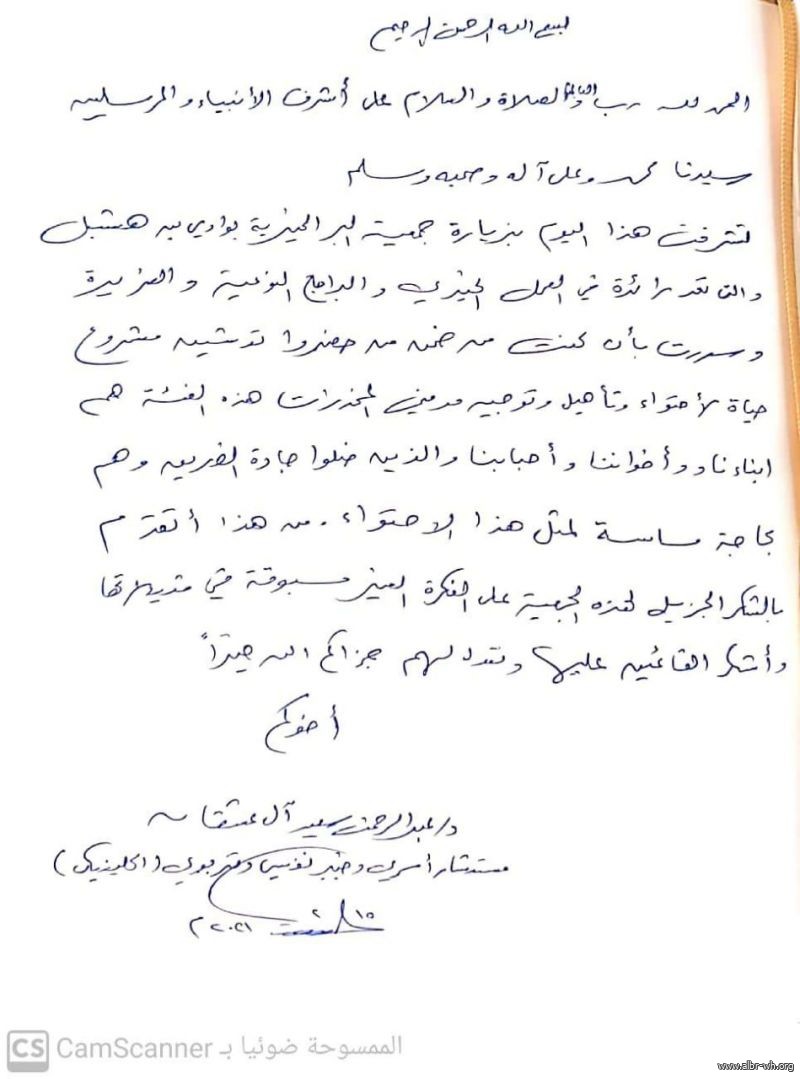 بسم الله الرحمن الرحيم
الحمد لله رب العالمين والصلاة والسلام على أشرف الأنبياء والمرسلين
سيدنا محمد وعلى آله وصحبه وسلم
تشرفت هذا اليوم بزيارة جمعية البر الخيرية بوادي بن هشبل
والتي تعد رائدة في العمل الخيري والبرامج النوعية والفريدة
وسررت بأن كنت من ضمن من حضروا تدشين مشروع
حياة لأحتواء وتأهيل وتوجيه مدمني المخدرات هذه الفئة هم
ابناءنا وأخواننا وأحبابنا والذين ضلوا جادة الطريق وهم
بحاجة ماسة لمثل هذا الاحتواء. من هذا أتقدم
بالشكر الجزيل لهذه الجمعية على الفكرة الغير مسبوقة في مثيلاتها
وأشكر القائمين عليها ونقول لهم جزاكم الله خيراً
أخوكم
د/عبدالرحمن سعيد آل عشقان
مستشار أسري وخبير نفسي وتربوي (اكلينيكي)
١٥ ٢ ٢٠٢١م
CS CamScanner الممسوحة ضوئيا بـ
www.albr-wh.org